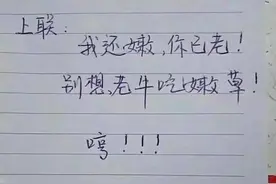 上联:
我还嫩,你已老!
别想,老牛吃嫩草!
哼!!!